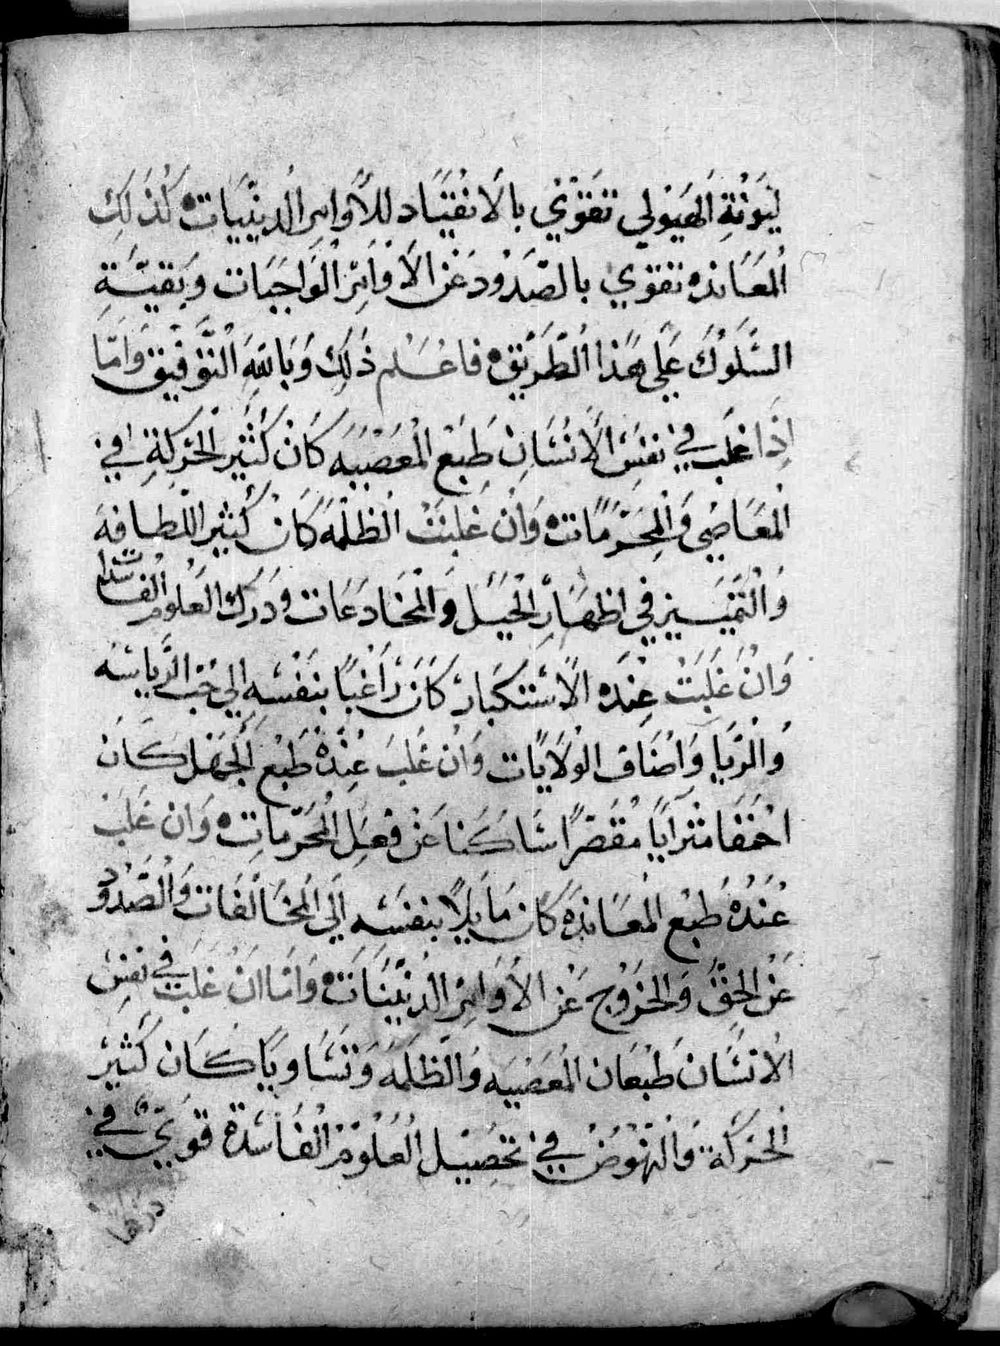 لِيَوْنَةِ الهَيَوْلي تقَوْي بالانْقيَاد للأوامر الدينيَات كَذَلِكَ
المعَانده تقوي بالصّدُود عَن الأوَامِر الوَاجبَات وبَقيّةِ
السّلوك عَلي هَذا الطّريق فاعْلم ذلِكَ وَباللهِ التَّوفيق وَأمّا
إذَا غلب في نفسِ الانسَان طَبْع المعْصيَه كَانَ كَثير الحَركة في
المعَاصِي وَالمحرّمَات وَان غَلبَتْ الظلمَة كَانَ كَثير اللطافَة
وَالتّميَيز في اظهَار الحيَل وَالمخَادعَات ودَرك العلوم الفَاسدَات
وَانْ غَلَبَتْ عِنْدَه الاسْتكبَار كَانَ رَاغبًا بنَفسَه الي حُبّ الرّياسَه
وَالرّيَا وَاصْنَاف الولايَات وَان غَلبَ عِنْدهُ طَبْع الجَهْل كَانَ
احْمَقَا متْرَايًا مُقَصّرًا سَاكنَا عَنْ فِعْل المحَرّمات وَان غَلَبَ
عِنْدهُ طَبْع المعَاندَة كَانَ مَايلًا بنَفسَه إلَي المخَالفَات وَالصّدُود
عَن الحقّ وَالخرُوج عَن الأوَامِر الدينيَات وَامّا انْ غَلَبَ في نفسِ
الانْسَان طَبْعَان المعْصيَه وَالظلمَه وَتسَاويَا كَانَ كَثير
الحرَكة وَالنهُوض في تحْصيل العُلوم الفَاسدة قوي في